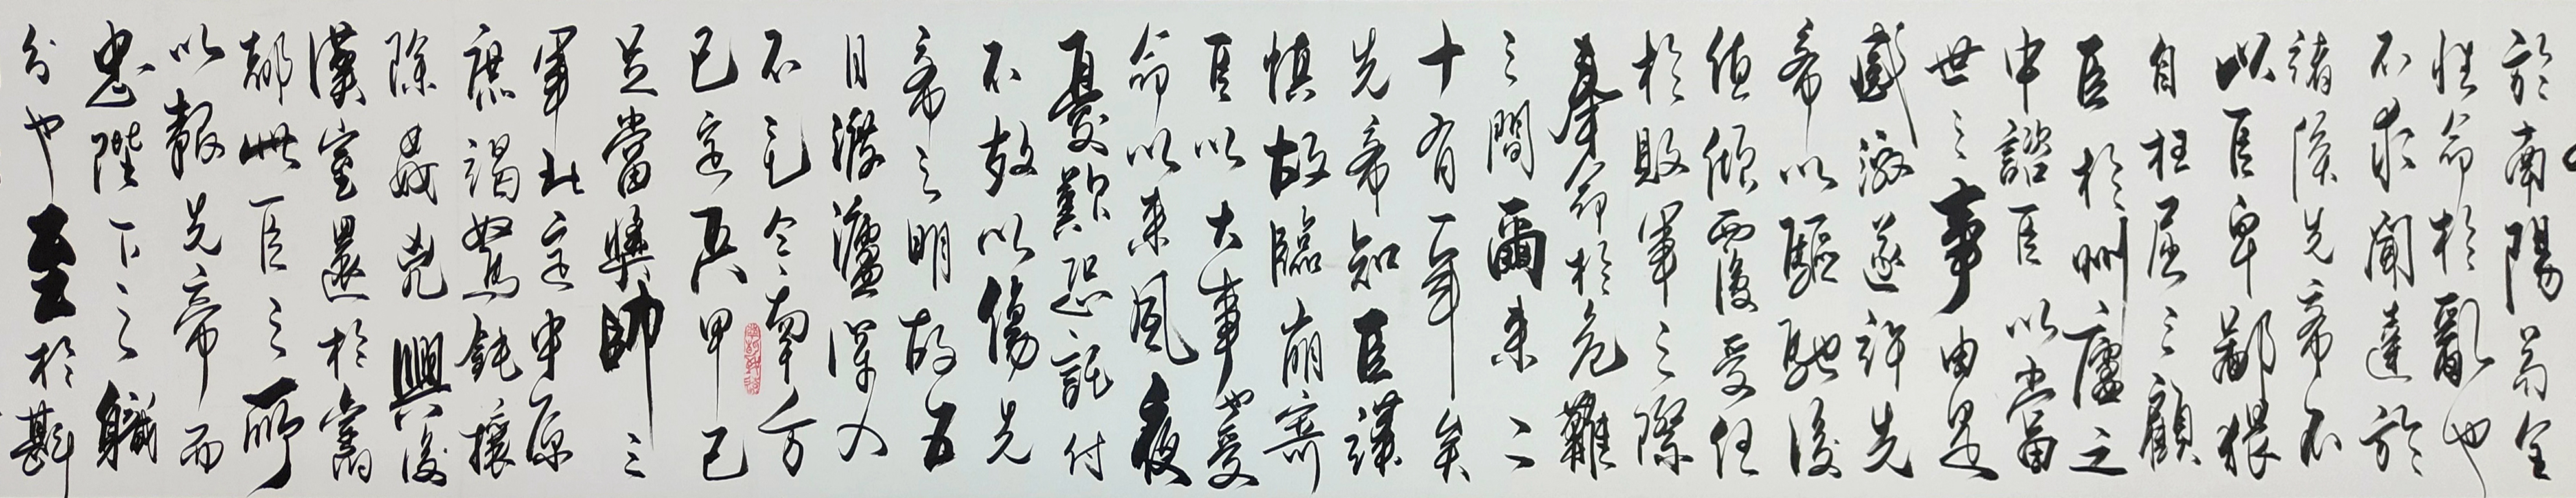 於南陽苟全
性命於亂世
不求聞達於
諸侯先帝不
以臣卑鄙猥
自枉屈三顧
臣於艸廬之
中諮臣以當
世之事由是
感激遂許先
帝以驅馳後
值傾覆受任
於敗軍之際
奉命於危難
之間爾來二
十有一年矣
先帝知臣謹
慎故臨崩寄
臣以大事也受
命以來夙夜
憂歎恐託付
不效以傷先
帝之明故五
月渡瀘深入
不毛今南方
已定兵甲已
足當獎帥三
軍北定中原
庶竭駑鈍攘
除姦兇興復
漢室還於舊
都此臣之所
以報先帝而
忠陛下之職
分也至於斟